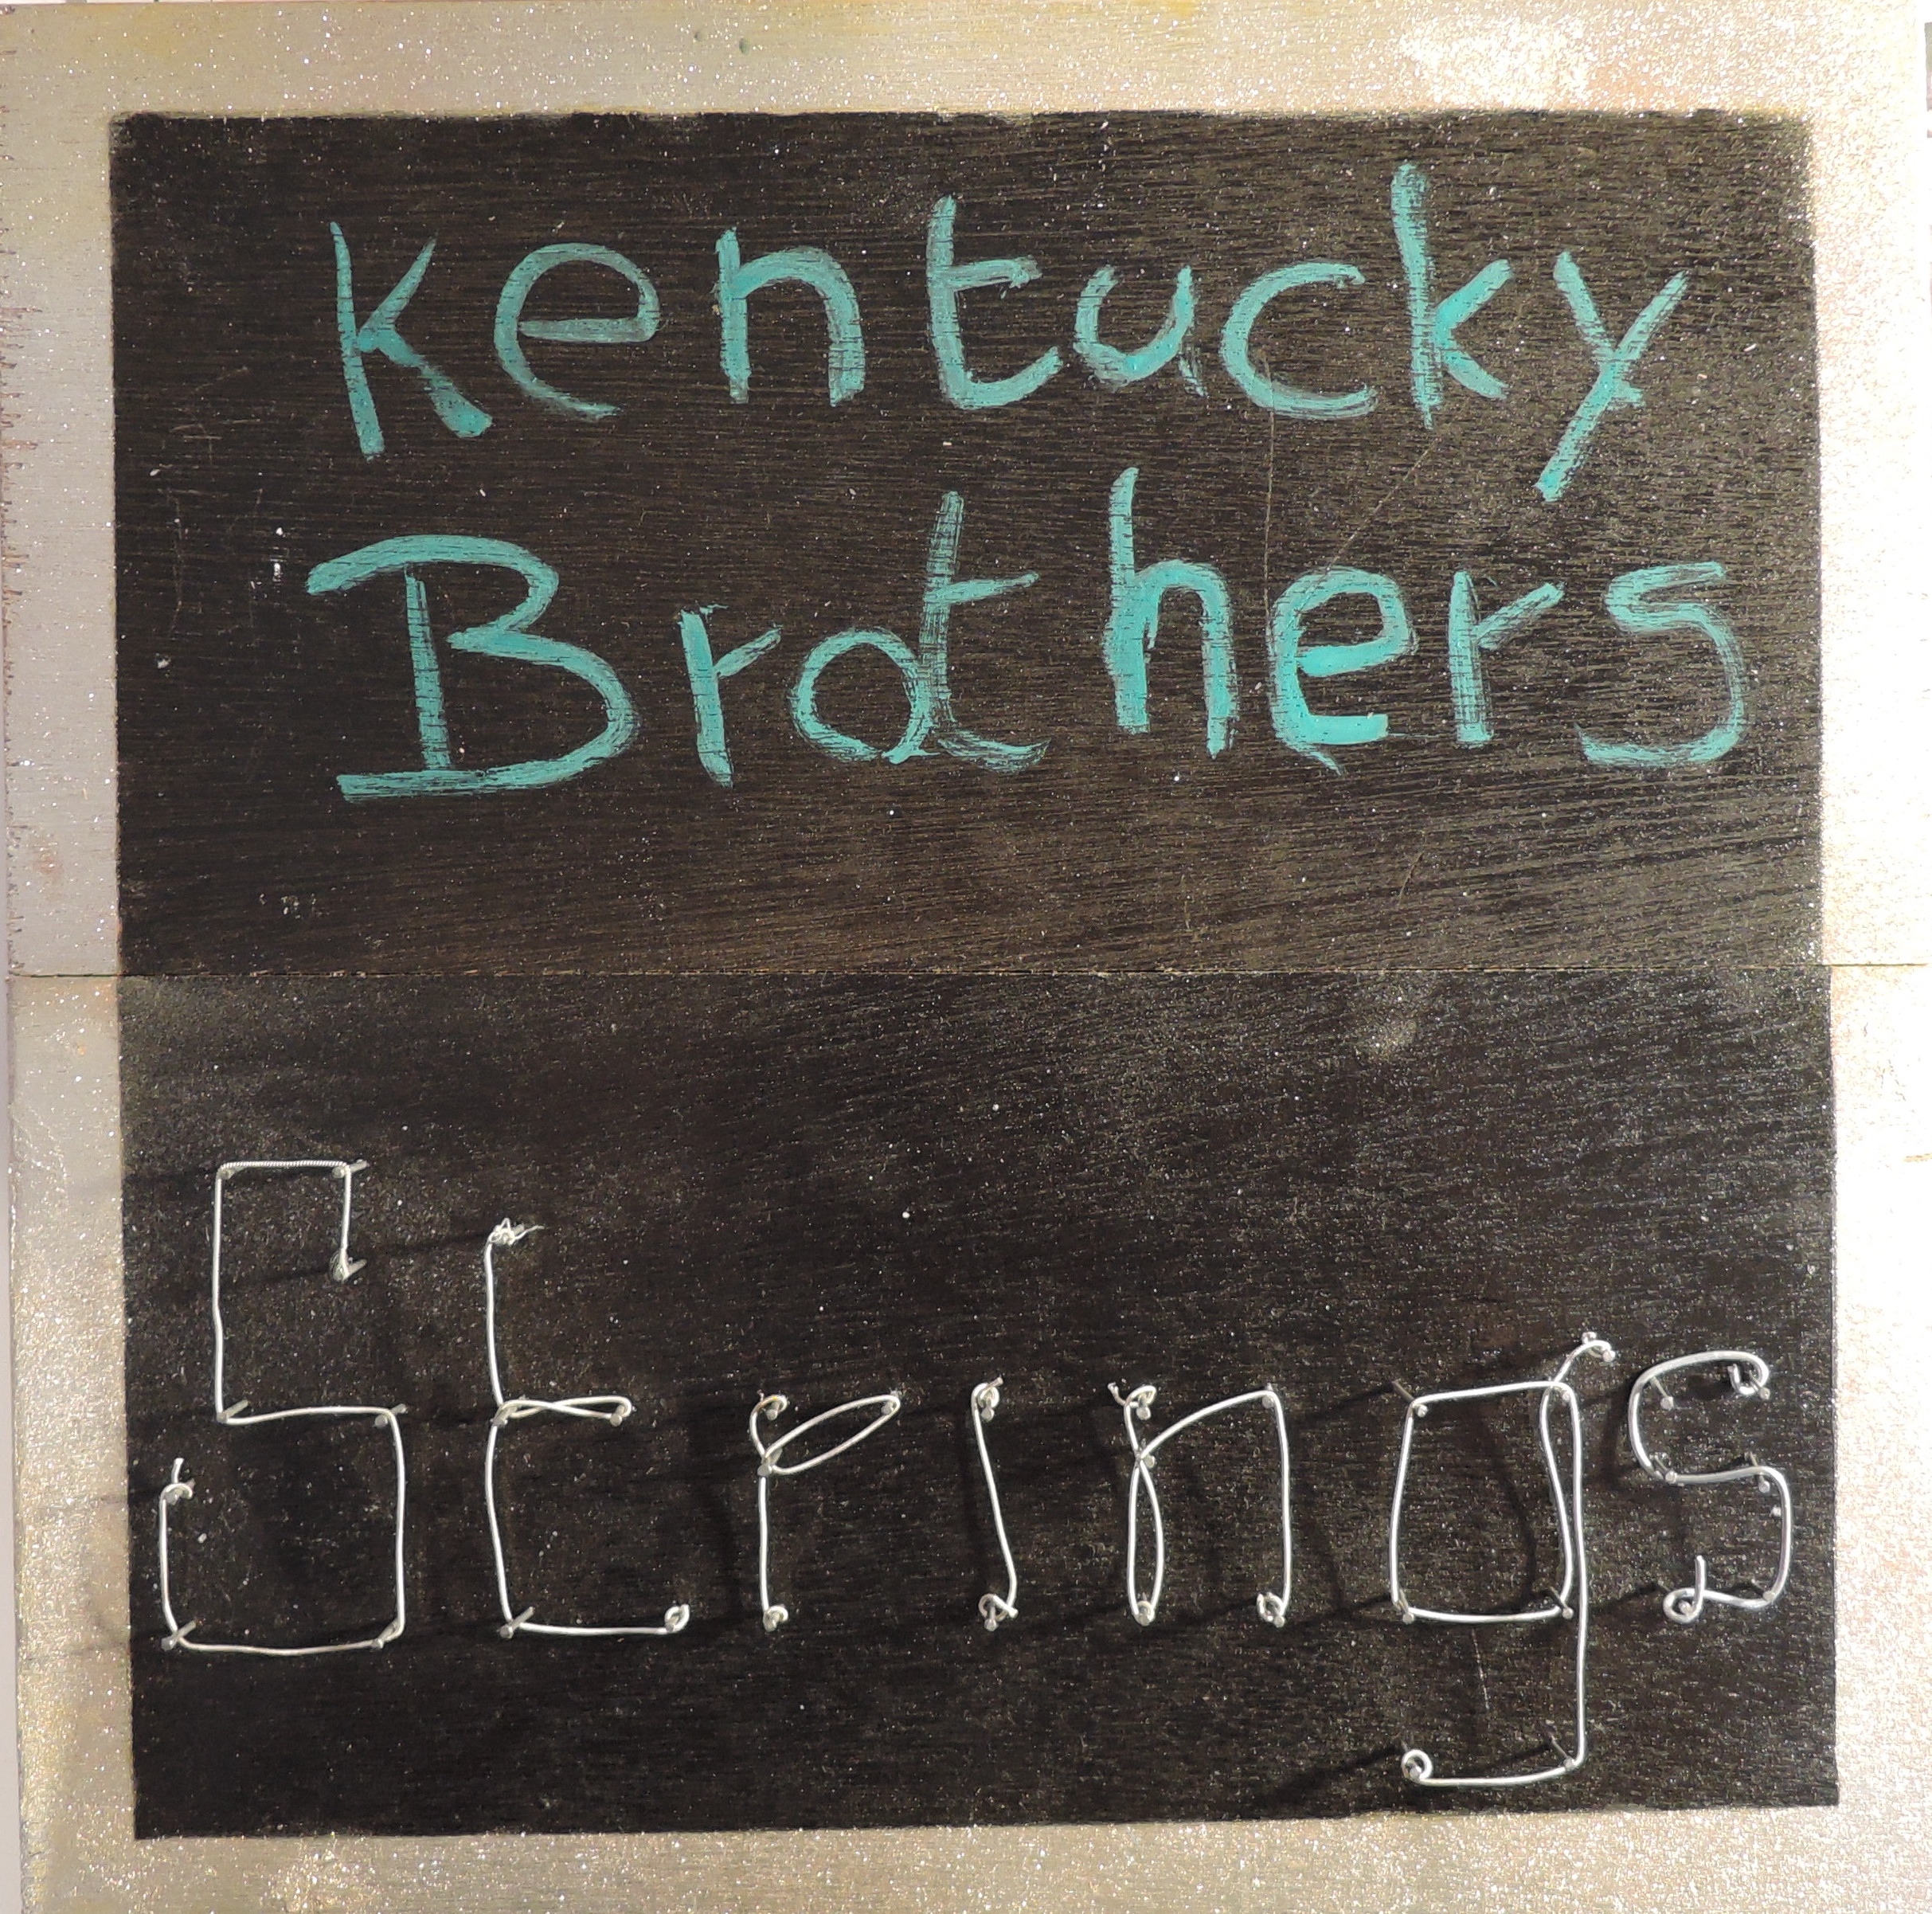 Kentucky
Brothers
Strings